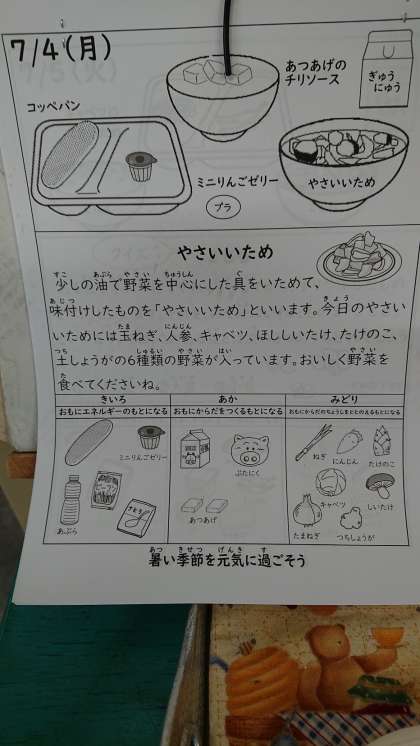 7/4(月)
あつあげの
チリソース
ぎゅう
にゅう
コッペパン
ミニりんごゼリー
プラ
やさいいため
やさいいため
少しの油で野菜を中心にした具をいためて、
味付けしたものを「やさいいため」といいます。今日のやさい
いためには玉ねぎ、人参、キャベツ、ほししいたけ、たけのこ、
土しょうがの6種類の野菜が入っています。おいしく野菜を
食べてくださいね。
きいろ
おもにエネルギーのもとになる
ミニりんごゼリー
あぶら
ビーフン
さとう
あか
おもにからだをつくるもとになる
ぶたにく
あつあげ
みどり
おもにからだのちょうしをととのえるもとになる
ねぎ
にんじん
たけのこ
キャベツ
しいたけ
たまねぎ
つちしょうが
暑い季節を元気に過ごそう